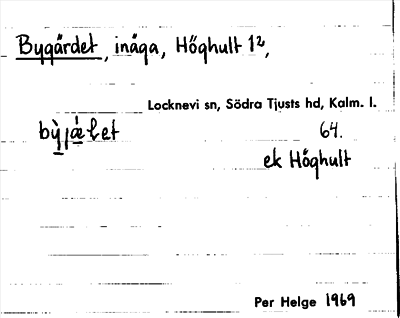 Bygärdet, inäga, Höghult 1²,
Locknevi sn, Södra Tjusts hd, Kalm. l.
64.
ek Höghult
Per Helge 1969